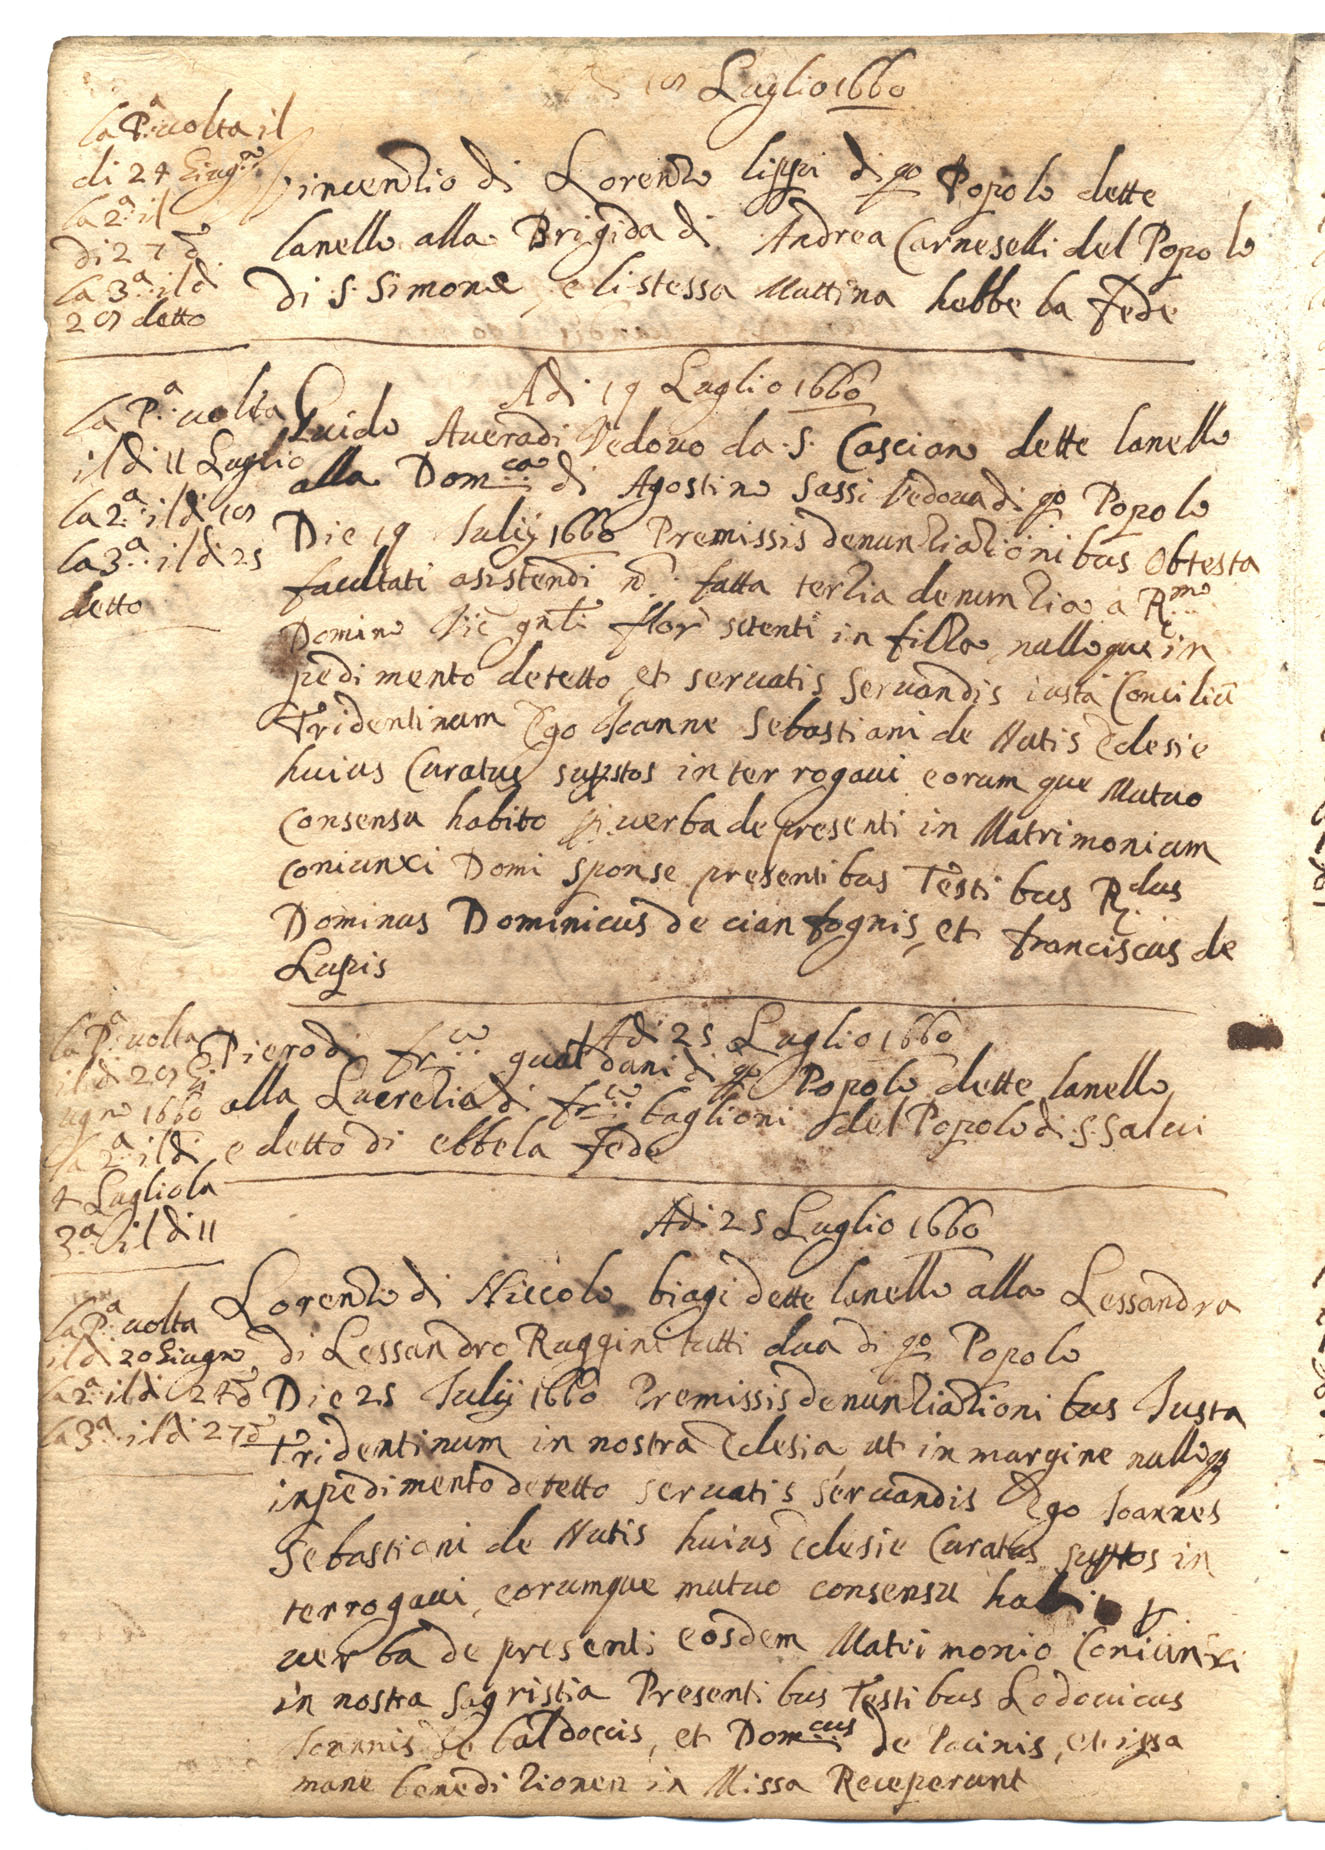 Luglio 1660
la P.a uolta il
di 24 Giug.o
la 2.a il
di 27 d.o
la 3.a il di
29 detto
Vincentio di Lorenzo lippi di qo Popolo dette
lanello alla Brigida di Andrea Carneselli del Popolo
di S. Simone, e li stessa Mattina hebbe la fede
Adi 19 Luglio 1660
la P.a uolta
il di 11 Luglio
la 2.a il di 18
la 3.a il di 25
detto
Guido Aueradi Vedouo da S. Casciano dette lanello
alla Dom.ca di Agostino Sassi Vedoua di qo Popolo
Die 19 Iulij 1660 Premissis denuntiationibus Obtesta
facultati asistendi n.o fatta tertia denumtia a R.mo
Domino Vic gnli flor sitenti in filla, nulloque in
pedimento detetto et seruatis seruandis iusta Conciliũ
Tridentinum Ego Ioanne Sebastiani de Nutis Eclesie
huius Curatus supstos interrogaui eorumque Mutuo
Consensu habito p. uerba de presenti in Matrimonium
Coniunxi Domi Sponse presentibus Testibus R.dus
Dominus Dominicus de cianfognis, et franciscus de
Lupis
Adi 25 Luglio 1660
la P.a uolta
il di 29 Gi
ugno 1660
la 2.a il di
4 Luglio la
3.a il di 11
Piero di fr.co gualdani di qo Popolo dette lanello
alla Lucretia di fr.co baglioni del Popolo di S. Salui
e detto di ebbe la fede
Adi 25 Luglio 1660
la P.a uolta
il di 20 Giugno
la 2.a il di 24 d.o
la 3.a il di 27 d.o
Lorenzo di Niccolo biagi dette lanello alla Lessandra
di Lessandro Ruggini tutti dua di qo Popolo
Die 25 Iulij 1660 Premissis denuntiationibus Iusta
Tridentinum in nostra Eclesia, ut in margine nulloq
inpedimento detetto seruatis seruandis Ego Ioannes
Sebastiani de Nutis huius Eclesie Curatus suptos in
terrogaui, eorumque mutuo consensu habito p
uerba de presenti eosdem Matrimonio Coniunxi
in nostra sagristia Presentibus Testibus Lodouicus
Ioannis de baldoccis, et Dom.cus de Pacinis, et issa
mane beneditionen in Missa Receperunt